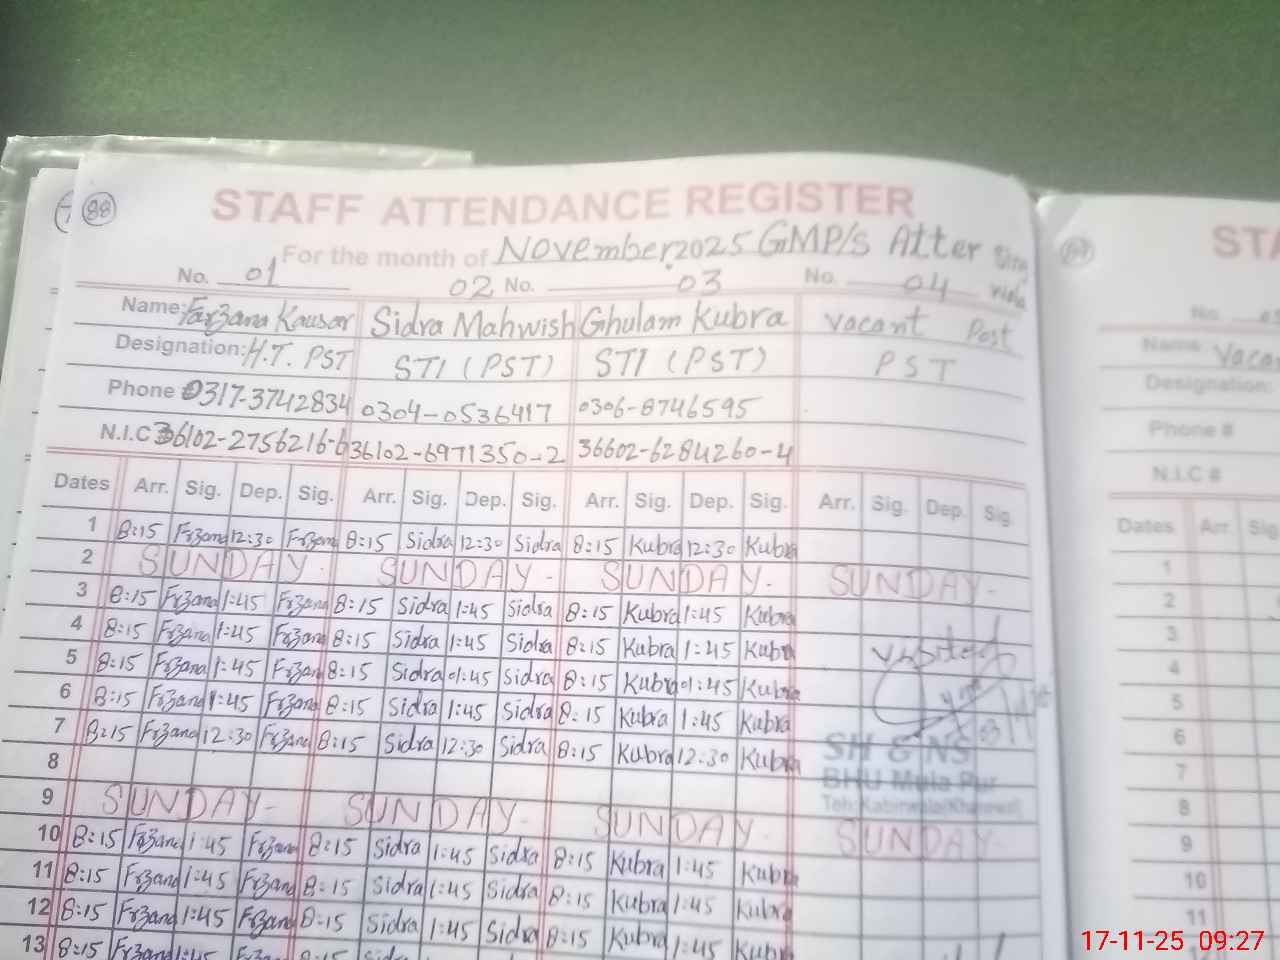 88
STAFF ATTENDANCE REGISTER
For the month of November 2025 GMP/s Atter
No. 01 02 No. 03 No. 04
Name: Farzana Kausar Sidra Mahwish Ghulam Kubra Vacant Post
Designation: H.T. PST STI (PST) STI (PST) PST
Phone 0317-3742834 0304-0536417 0306-8746595
N.I.C 36102-2756216-6 36102-6971350-2 36602-6284260-4
Dates Arr. Sig. Dep. Sig. Arr. Sig. Dep. Sig. Arr. Sig. Dep. Sig. Arr. Sig. Dep. Sig.
1 8:15 Frzana 12:30 Frzana 8:15 Sidra 12:30 Sidra 8:15 Kubra 12:30 Kubra
2 SUNDAY. SUNDAY. SUNDAY. SUNDAY.
3 8:15 Frzana 1:45 Frzana 8:15 Sidra 1:45 Sidra 8:15 Kubra 1:45 Kubra
4 8:15 Frzana 1:45 Frzana 8:15 Sidra 1:45 Sidra 8:15 Kubra 1:45 Kubra
5 8:15 Frzana 1:45 Frzana 8:15 Sidra 1:45 Sidra 8:15 Kubra 1:45 Kubra
6 8:15 Frzana 1:45 Frzana 8:15 Sidra 1:45 Sidra 8:15 Kubra 1:45 Kubra
7 8:15 Frzana 12:30 Frzana 8:15 Sidra 12:30 Sidra 8:15 Kubra 12:30 Kubra
SH & NS
BHU Mula Pur
8
9 SUNDAY. SUNDAY. SUNDAY. SUNDAY.
10 8:15 Frzana 1:45 Frzana 8:15 Sidra 1:45 Sidra 8:15 Kubra 1:45 Kubra
11 8:15 Frzana 1:45 Frzana 8:15 Sidra 1:45 Sidra 8:15 Kubra 1:45 Kubra
12 8:15 Frzana 1:45 Frzana 8:15 Sidra 1:45 Sidra 8:15 Kubra 1:45 Kubra
13 8:15 Frzana 1:45
STA
No.
Name: Vaca
Designation:
Phone #
N.I.C #
Dates Arr. Sig
1
2
3
4
5
6
7
8
9
10
11
17-11-25 09:27